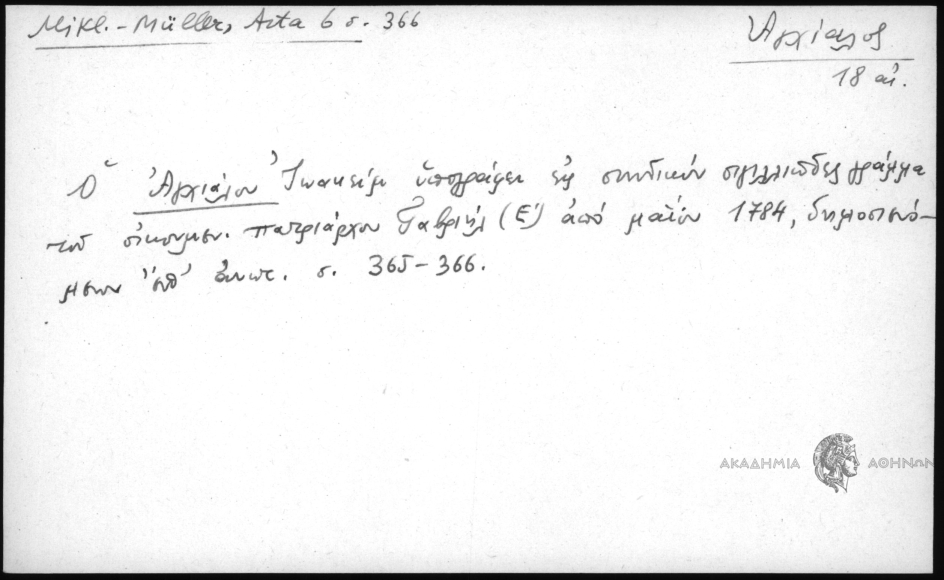 Mikl.-Müller, Acta 6 σ. 366
Ἀγχίαλος
18 αἰ.
Ὁ Ἀγχιάλου Ἰωακείμ ὑπογράφει εἰς συνοδικόν σιγιλλιῶδες γράμμα
τοῦ οἰκουμεν. πατριάρχου Γαβριήλ (Ε΄) ἀπό μαΐου 1784, δημοσιευό-
μενον ὑπ' σ. 365-366.
ΑΚΑΔΗΜΙΑ ΑΘΗΝΩΝ